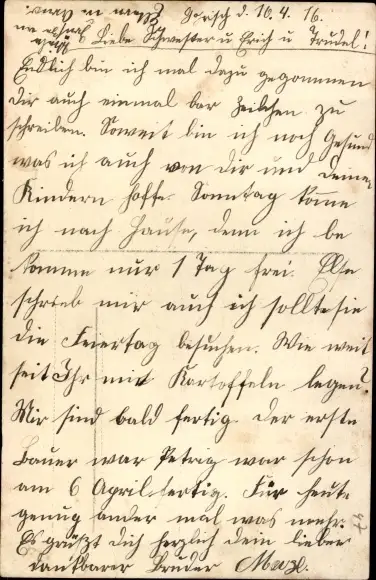 d. 10.4.16.
Liebe Schwester u Erich u Trudel!
Endlich bin ich mal dazu gekommen
dir auch einmal par Zeilchen zu
schreiben. Soweit bin ich noch Gesund
was ich auch von dir und deinen
Kindern hoffe. Sonntag komme
ich nach Hause, denn ich be
komme nur 1 Tag frei. Else
schrieb mir auch ich sollte sie
die Feiertag besuchen. Wie weit
seit Ihr mit Kartoffeln legen?
Wir sind bald fertig. der erste
Bauer war Petrig war schon
am 6 April fertig. Für heute
genug ander mal was mehr.
Es grüßzt dich herzlich dein lieber
dankbarer Bruder Max.